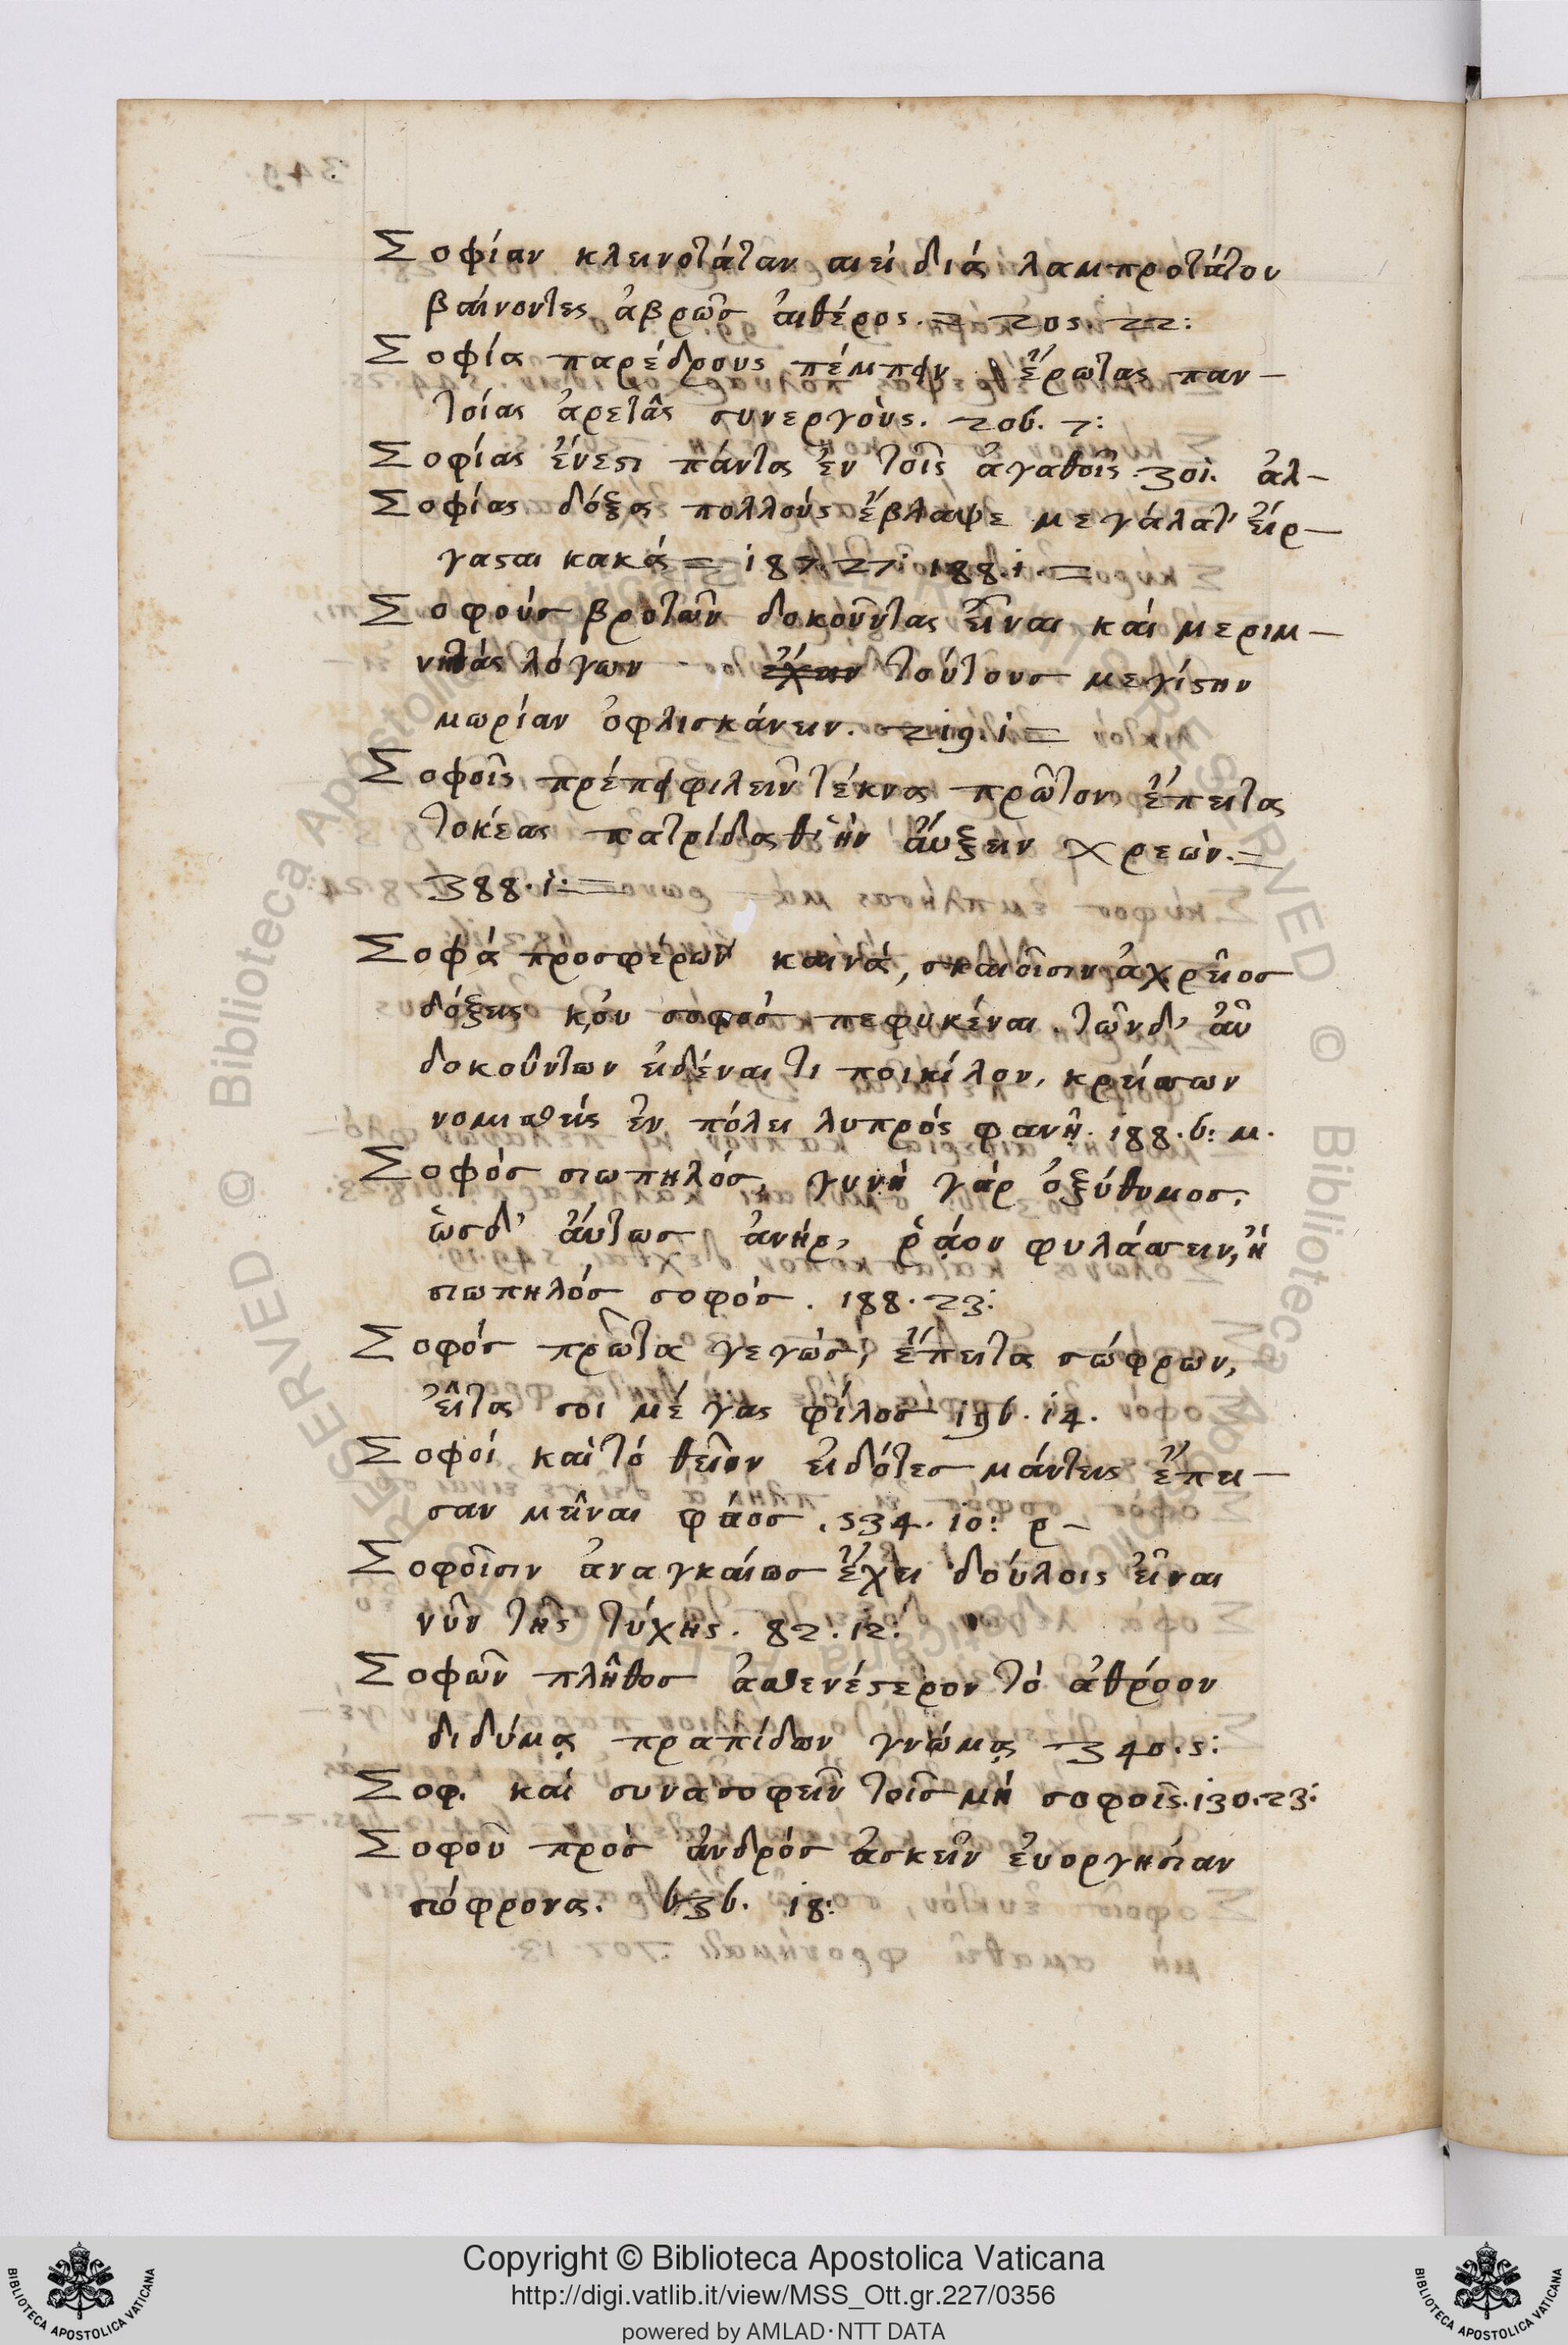 Σοφίαν κλεινοτάταν αιεί διά λαμπροτάτου
βαίνοντες ἁβρῶσ ἀιθέρος. = 205. 22:
Σοφία παρέδρους πέμπειν ἔρωτας παν-
τοίας ἀρετᾶς συνεργοὺς. 206. 7:
Σοφίας ἔνεϛι πάντα ἐν τοῖς ἀγαθοῖς 301. ἀλ-
Σοφίας δόξα πολλούς ἔβλαψε μεγάλατ' ἔιρ-
γαϛαι κακά = 187. 27: 188. 1. =
Σοφούσ βροτῶν δοκοῦντας εἶναι και μεριμ-
νητάς λόγων τούτουσ μεγίϛην
μωρίαν ὀφλισκάνειν. 219. 1 =
Σοφοῖς πρέπει φιλεῖν τέκνα πρῶτον ἔπειτα
τοκέας πατρίδα θ' ἡν ἄυξειν χρεὼν. =
388. 1: =
Σοφά προσφέρων καινά, σκαιοῖσιν ἀχρεῖοσ
δόξεις κ,ου σοφόσ πεφυκέναι. τῶνδ' ἀῦ
δοκοῦντων ειδέναι τι ποικίλον, κρείσσων
νομισθείς ἐν πόλει λυπρός φανῇ. 188. 6: μ.
Σοφόσ σιωπηλόσ, γυνή γάρ ὀξύθυμοσ,
ὡσδ' ἄυτωσ ἀνήρ, ῥᾴον φυλάσσειν, ἤ
σιωπηλόσ σοφόσ. 188. 23:
Σοφόσ πρῶτα γεγώσ, ἔπειτα σώφρων,
εἶτα σοι μέγας φίλοσ 196. 14.
Σοφοί καὶ τό θεῖον ειδότεσ μάντεις ἔπει-
σαν μεῖναι φάοσ. 534. 10: ρ-
Σοφοῖσιν ἀναγκαίωσ ἔχει δούλοις εἶναι
νῦν τῆς τύχης. 82. 12:
Σοφῶν πλῆθοσ ἀσθενέϛερον τό ἀθρόον
διδύμᾳς πραπίδων γνώμᾳς 340. 5:
Σοφ. και συνασοφεῖν τοῖσ μή σοφοῖς. 130. 23:
Σοφοῦ πρόσ ἀνδρόσ ἀσκεῖν ἐυοργησίαν
σώφρονα. 636. 18:
Copyright © Biblioteca Apostolica Vaticana
http://digi.vatlib.it/view/MSS_Ott.gr.227/0356
powered by AMLAD·NTT DATA